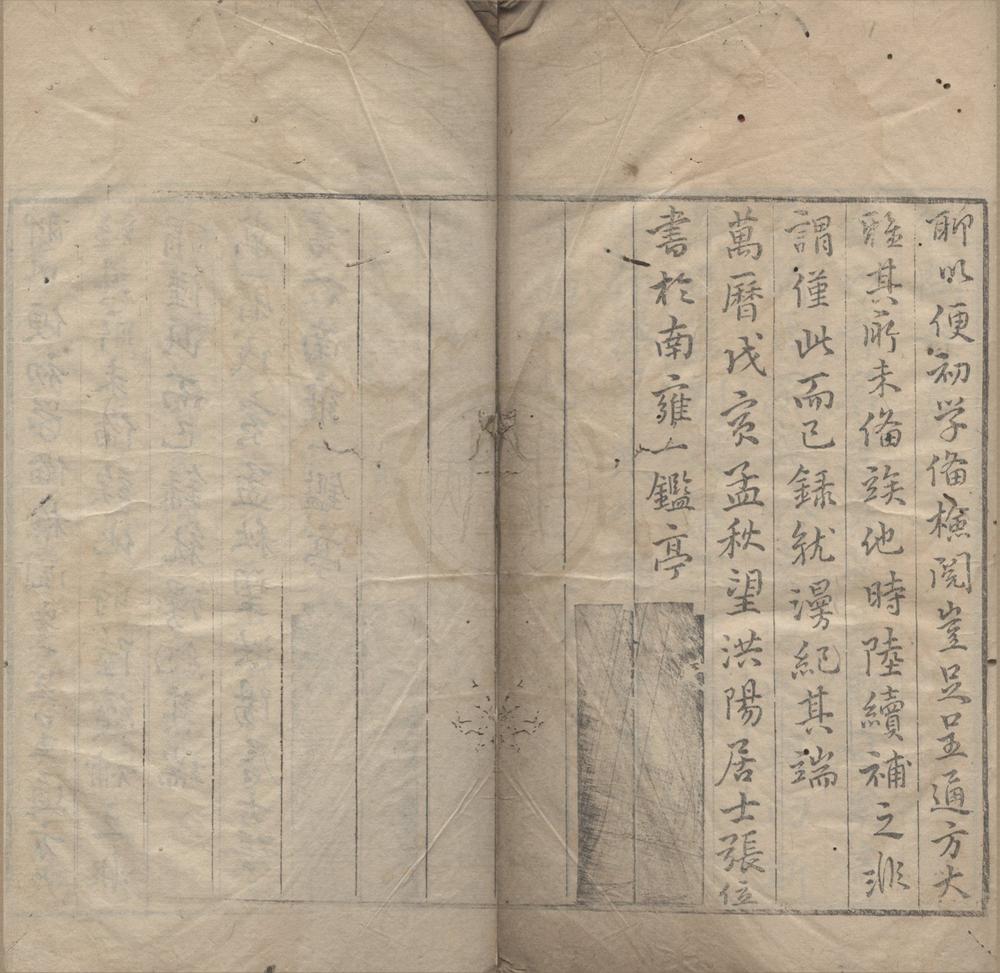 聊以便初学俻撿閲豈足呈通方大
雅其所未俻竢他時陸續補之非
謂僅此而已録就漫紀其端
萬曆戊寅孟秋望洪陽居士張位
書於南雍一鑑亭